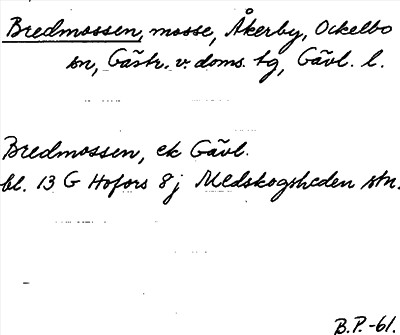 Bredmossen, mosse, Åkerby, Ockelbo
sn, Gästr. v. doms. tg, Gävl. l.
Bredmossen, ek Gävl.
bl. 13 G Hofors 8 j Medskogsheden stn.
B.P.-61.